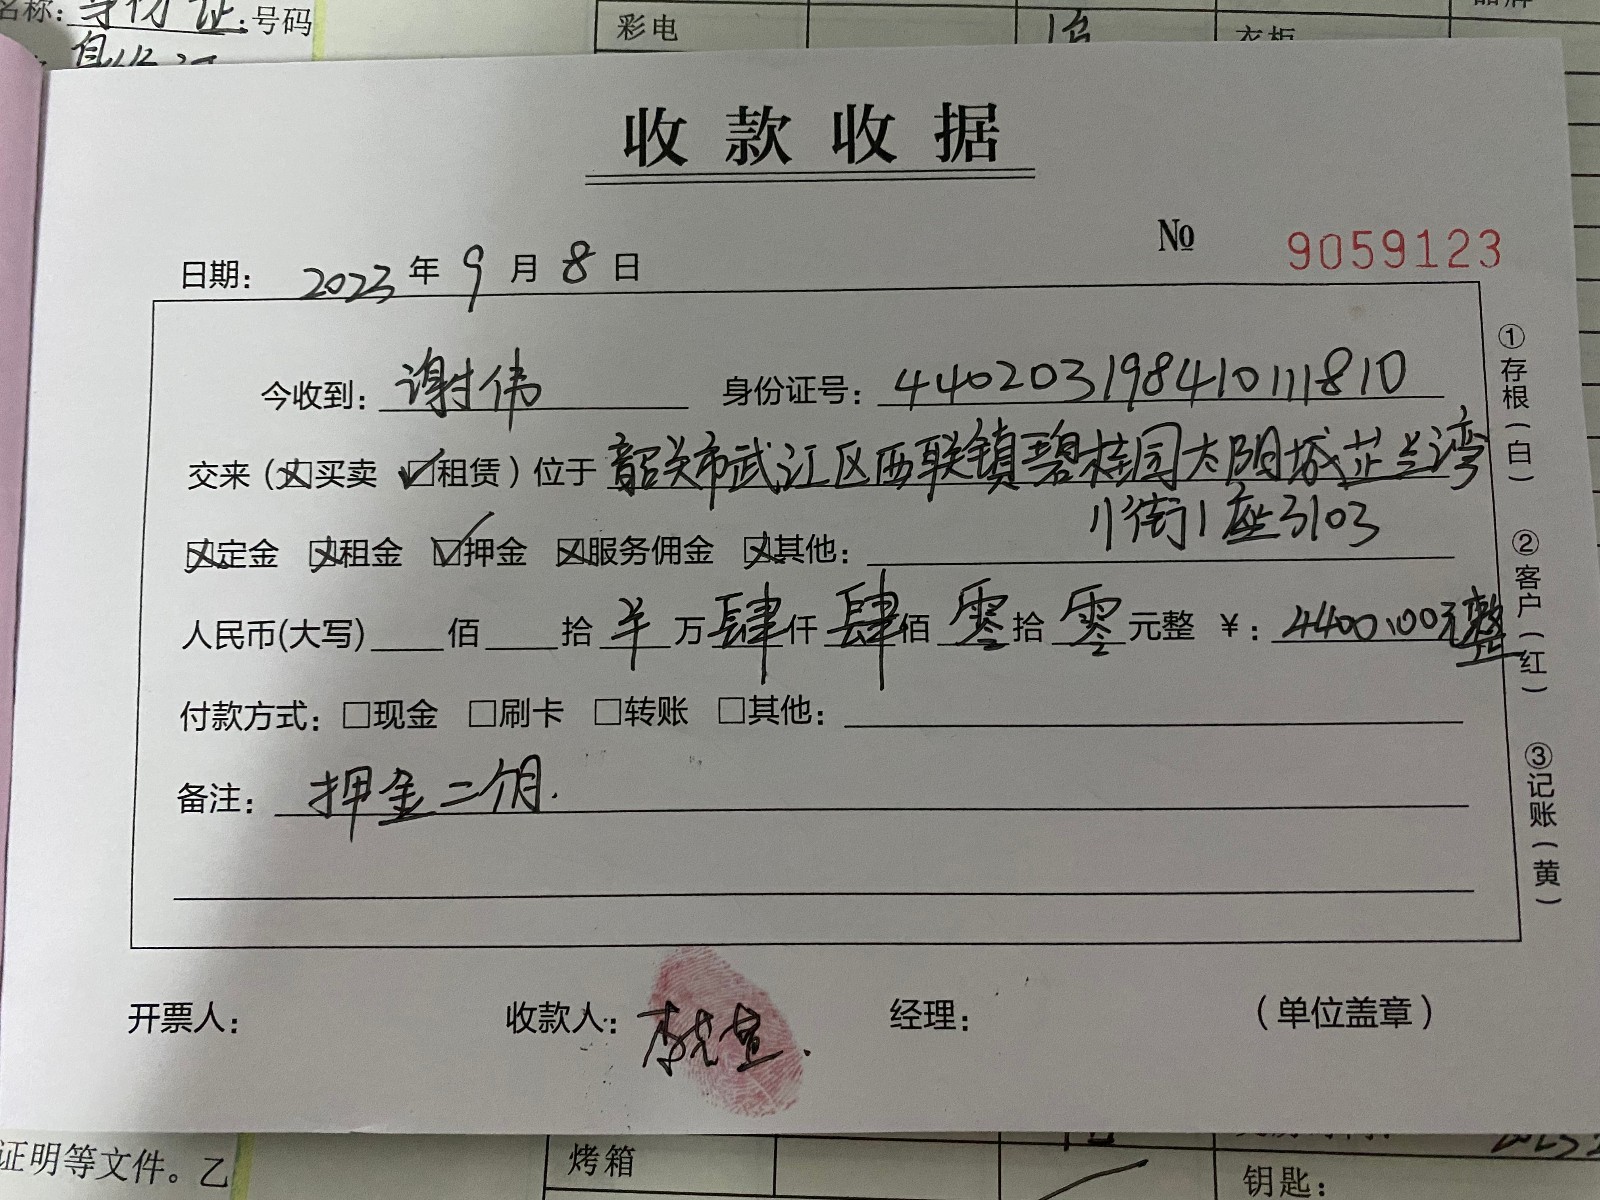 名称：身份证 号码
彩电 1台 衣柜
收款收据
№ 9059123
日期：2023年9月8日
今收到：谢伟 身份证号：440203198410111810
交来（☒买卖 ☑租赁）位于 韶关市武江区西联镇碧桂园太阳城芷兰湾
11街1座3103
☒定金 ☒租金 ☑押金 ☒服务佣金 ☒其他：
人民币(大写) 佰 拾 半 万 肆 仟 肆 佰 零 拾 零 元整 ￥：4400.00元整
付款方式：□现金 □刷卡 □转账 □其他：
备注：押金二个月.
①存根（白） ②客户（红） ③记账（黄）
开票人： 收款人： 经理： （单位盖章）
证明等文件。乙
烤箱
钥匙：